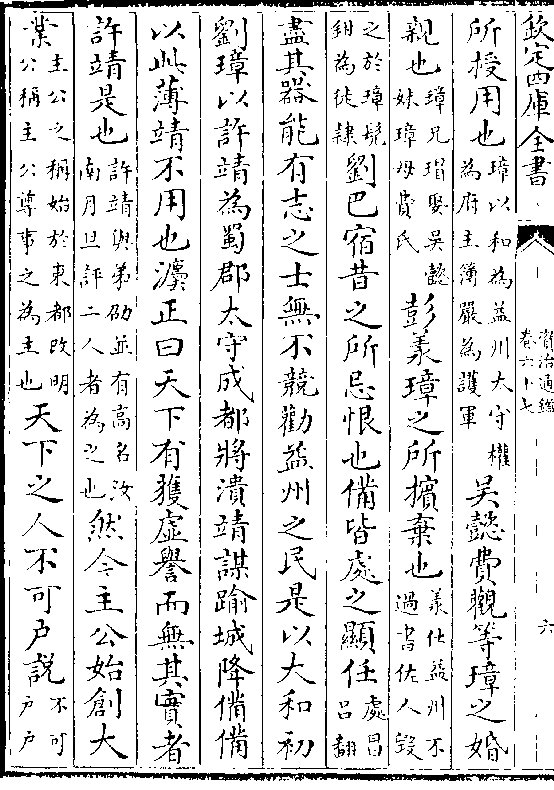 欽定四庫全書
資治通鑑
卷六十七
六
所授用也璋以和為益州太守權
為府主簿嚴為護軍吳懿費觀等璋之婚
親也璋兄瑁娶吳懿
妹璋母費氏彭羕璋之所擯棄也羕仕益州不
過書佐人毀
之於璋髠
鉗為徒隷劉巴宿昔之所忌恨也備皆處之顯任處昌
呂翻
盡其器能有志之士無不競勸益州之民是以大和初
劉璋以許靖為蜀郡太守成都將潰靖謀踰城降備備
以此薄靖不用也灋正曰天下有獲虚譽而無其實者
許靖是也許靖與弟劭並有高名汝
南月旦評二人者為之也然今主公始創大
業主公之稱始於東都改明
公稱主公尊事之為主也天下之人不可户説不可
户户